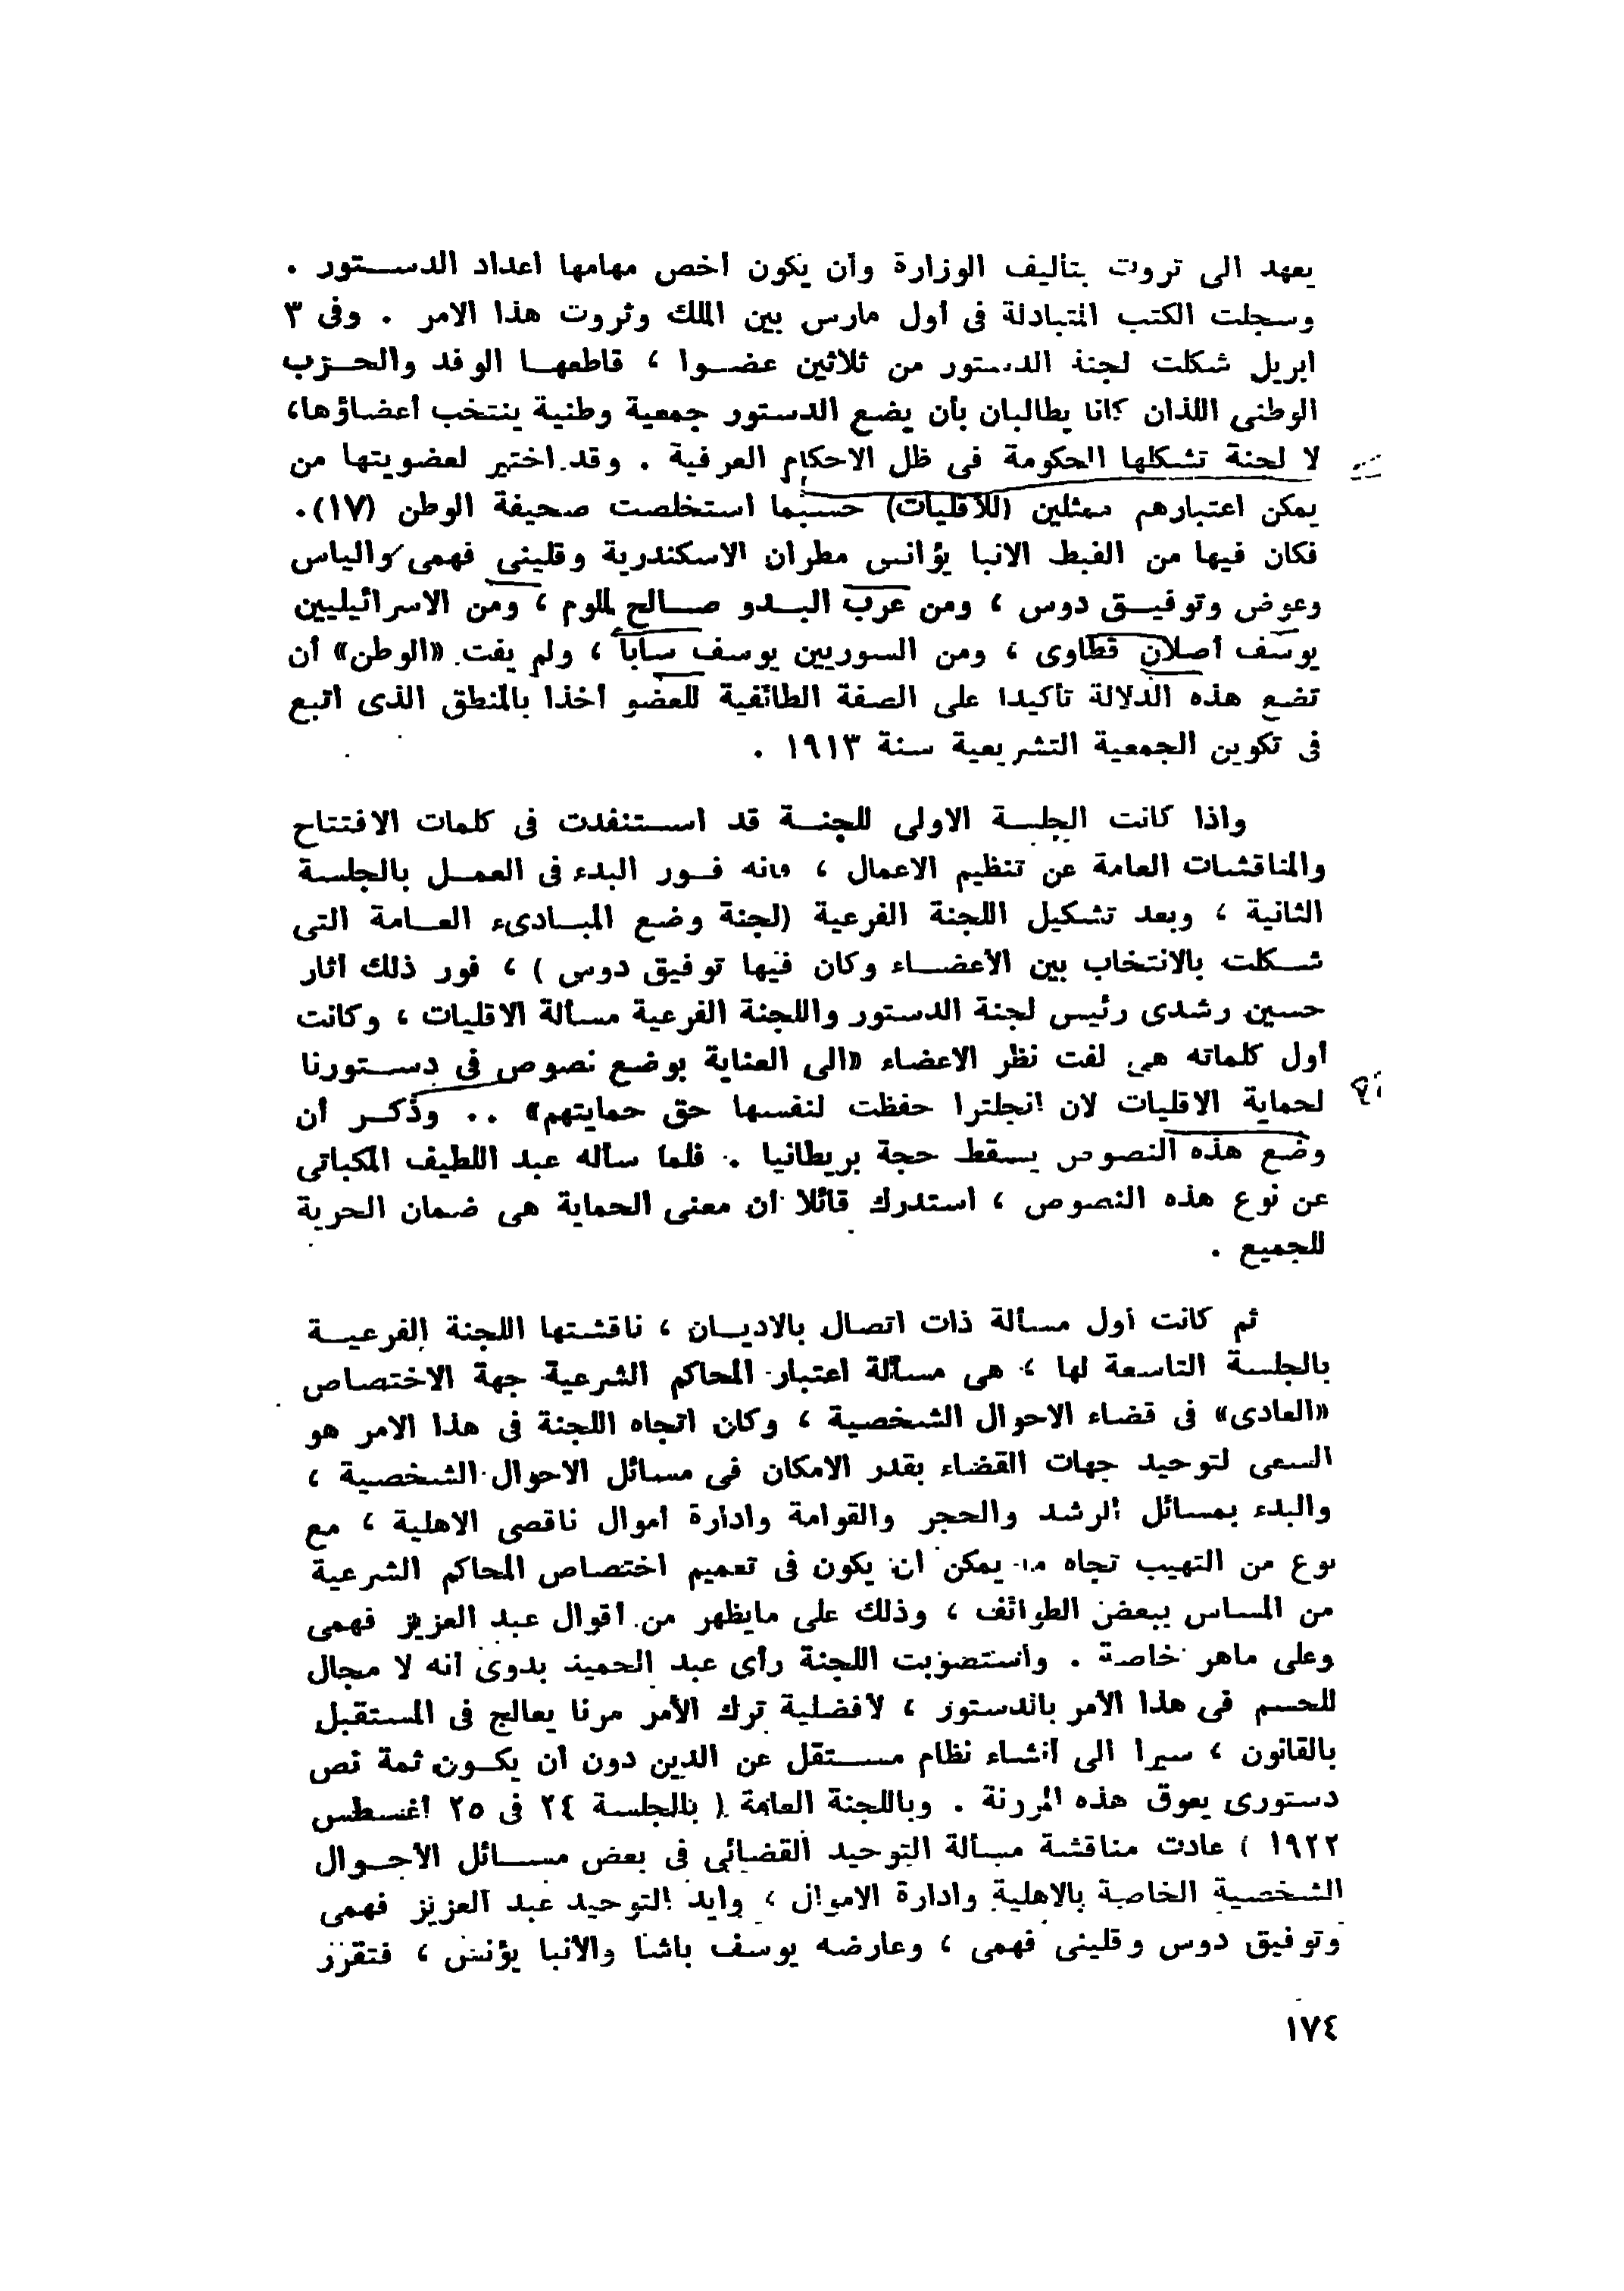 يعهد الى ثروت بتأليف الوزارة وأن يكون أخص مهامها اعداد الدستور .
وسجلت الكتب المتبادلة فى أول مارس بين الملك وثروت هذا الامر . وفى ٣
ابريل شكلت لجنة الدستور من ثلاثين عضوا ، قاطعها الوفد والحزب
الوطنى اللذان كانا يطالبان بأن يضع الدستور جمعية وطنية ينتخب أعضاؤها،
لا لجنة تشكلها الحكومة فى ظل الاحكام العرفية . وقد اختير لعضويتها من
يمكن اعتبارهم ممثلين (للأقليات) حسبما استخلصت صحيفة الوطن (١٧).
فكان فيها من القبط الانبا يؤانس مطران الاسكندرية وقلينى فهمى والياس
وعوض وتوفيق دوس ، ومن عرب البدو صالح لملوم ، ومن الاسرائيليين
يوسف أصلان قطاوى ، ومن السوريين يوسف سابا ، ولم يفت «الوطن» أن
تضع هذه الدلالة تأكيدا على الصفة الطائفية للعضو أخذا بالمنطق الذى اتبع
فى تكوين الجمعية التشريعية سنة ١٩١٣ .
واذا كانت الجلسة الاولى للجنة قد استنفدت فى كلمات الافتتاح
والمناقشات العامة عن تنظيم الاعمال ، فانه فور البدء فى العمل بالجلسة
الثانية ، وبعد تشكيل اللجنة الفرعية (لجنة وضع المبادىء العامة التى
شكلت بالانتخاب بين الأعضاء وكان فيها توفيق دوس ) ، فور ذلك أثار
حسين رشدى رئيس لجنة الدستور واللجنة الفرعية مسألة الاقليات ، وكانت
أول كلماته هى لفت نظر الاعضاء «الى العناية بوضع نصوص فى دستورنا
لحماية الاقليات لان انجلترا حفظت لنفسها حق حمايتهم» .. وذكر أن
وضع هذه النصوص يسقط حجة بريطانيا . فلما سأله عبد اللطيف المكباتى
عن نوع هذه النصوص ، استدرك قائلا أن معنى الحماية هى ضمان الحرية
للجميع .
ثم كانت أول مسألة ذات اتصال بالاديان ، ناقشتها اللجنة الفرعية
بالجلسة التاسعة لها ، هى مسألة اعتبار المحاكم الشرعية جهة الاختصاص
«العادى» فى قضاء الاحوال الشخصية ، وكان اتجاه اللجنة فى هذا الامر هو
السعى لتوحيد جهات القضاء بقدر الامكان فى مسائل الاحوال الشخصية ،
والبدء بمسائل الرشد والحجر والقوامة وادارة أموال ناقصى الاهلية ، مع
نوع من التهيب تجاه ما يمكن أن يكون فى تعميم اختصاص المحاكم الشرعية
من المساس ببعض الطوائف ، وذلك على مايظهر من أقوال عبد العزيز فهمى
وعلى ماهر خاصة . واستصوبت اللجنة رأى عبد الحميد بدوى أنه لا مجال
للحسم فى هذا الأمر بالدستور ، لافضلية ترك الأمر مرنا يعالج فى المستقبل
بالقانون ، سيرا الى انشاء نظام مستقل عن الدين دون أن يكون ثمة نص
دستورى يعوق هذه المرونة . وباللجنة العامة ( بالجلسة ٢٤ فى ٢٥ أغسطس
١٩٢٢ ) عادت مناقشة مسألة التوحيد القضائى فى بعض مسائل الأحوال
الشخصية الخاصة بالاهلية وادارة الاموال ، وايد التوحيد عبد العزيز فهمى
وتوفيق دوس وقلينى فهمى ، وعارضه يوسف باشا والأنبا يؤنس ، فتقرر
١٧٤